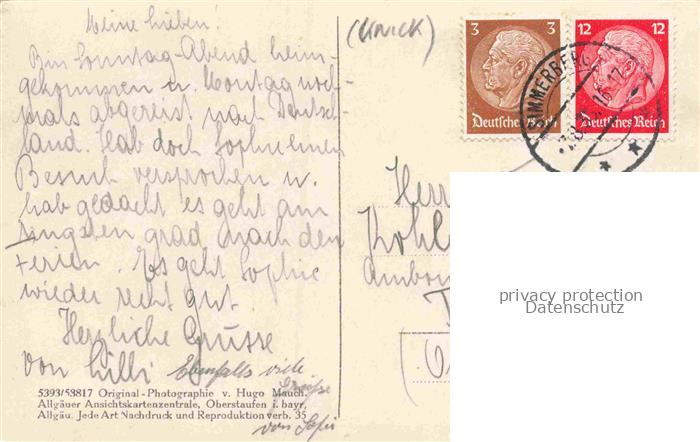 Meine Lieben!
Bin Sonntag-Abend heim-
gekommen u. Montag noch-
mals abgereist nach Deutsch-
land. Hab doch Sophie einen
Besuch versprochen u.
hab gedacht es geht am
ringsten grad nach den
Ferien. Es geht Sophie
wieder recht gut.
Herzliche Grüsse
von Lilli
Ebenfalls viele
Grüsse
von Sofie
5393/53817 Original-Photographie v. Hugo Mauch.
Allgäuer Ansichtskartenzentrale, Oberstaufen i. bayr.
Allgäu. Jede Art Nachdruck und Reproduktion verb. 35
(KNICK)
3 3
Deutsches Reich
12 12
Deutsches Reich
SIMMERBERG
Herr
Kohle
privacy protection
Datenschutz